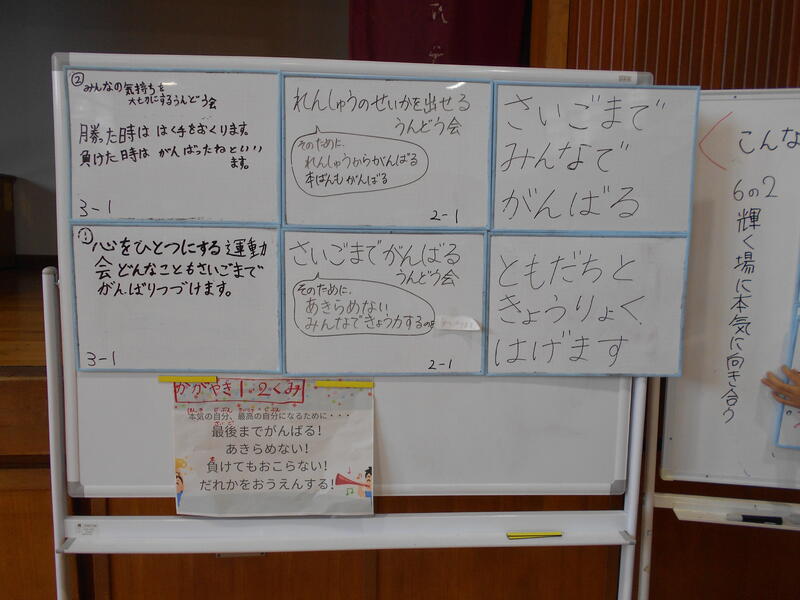 ②みんなの気持ちを
大切にするうんどう会
勝った時は はく手をおくります。
負けた時は がんばったねといい
ます。
3-1
れんしゅうのせいかを出せる
うんどう会
そのために、
れんしゅうからがんばる
本ばんもがんばる
2-1
さいごまで
みんなで
がんばる
①心をひとつにする運動
会どんなこともさいごまで
がんばりつづけます。
3-1
さいごまでがんばる
うんどう会
そのために、
あきらめない
みんなできょう力する
2-1
ともだちと
きょうりょく
はげます
かがやき1・2くみ
本気の自分、最高の自分になるために・・・
最後までがんばる!
あきらめない!
負けてもおこらない!
だれかをおうえんする!
こんな
6の2
輝く場に本気に向き合う